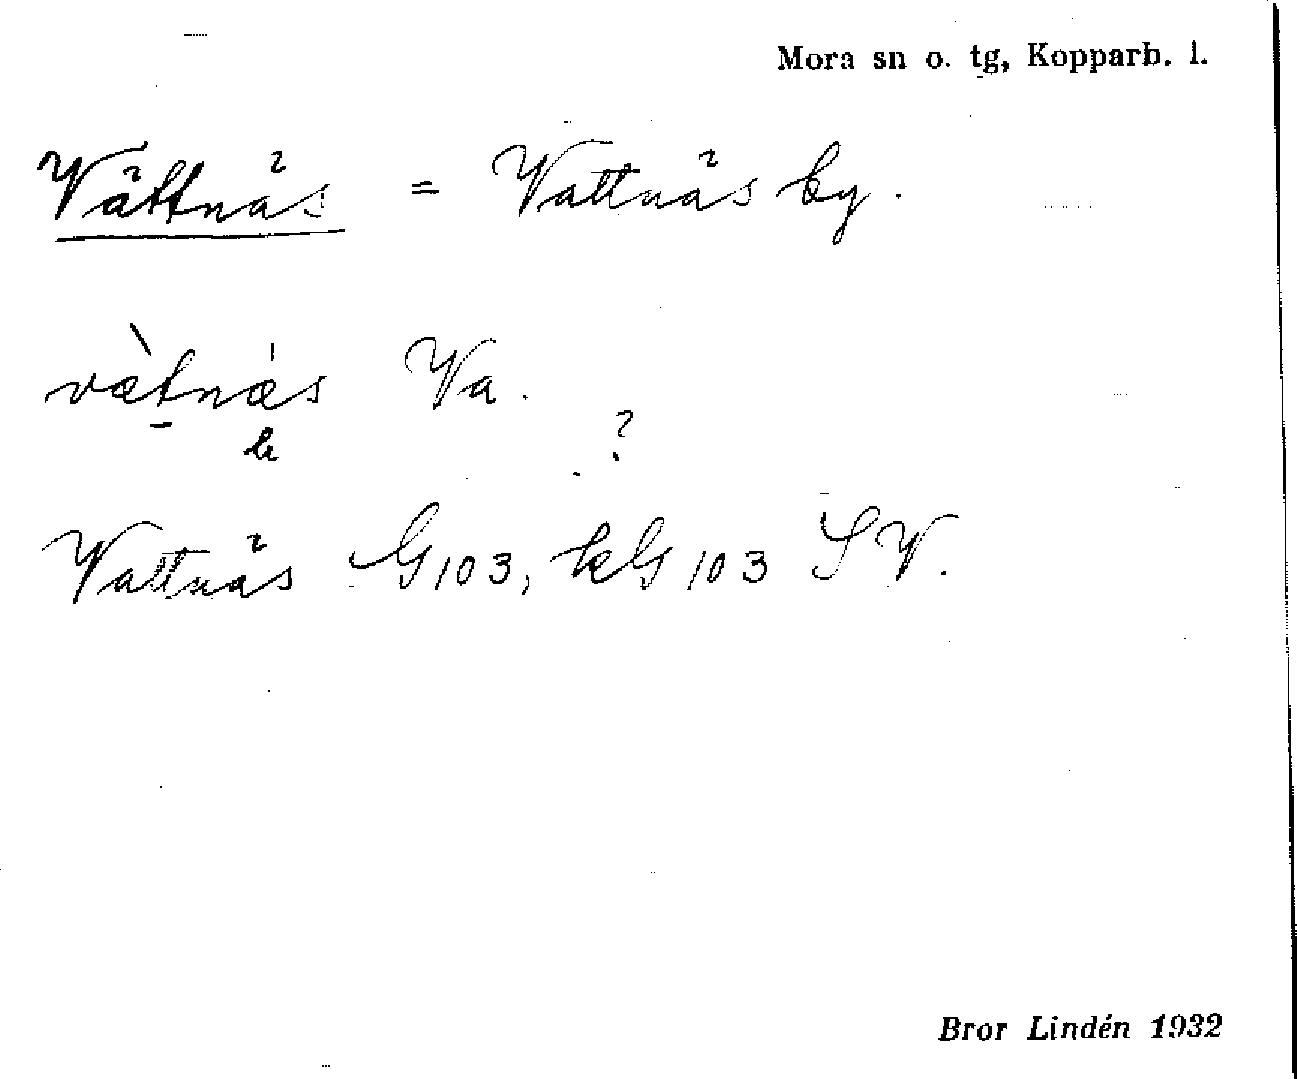 Mora sn o. tg, Kopparb. l.
Vättnäs = Vattnäs by.
vætnæs Va.
?
Vattnäs G103, kG 103 SV.
Bror Lindén 1932